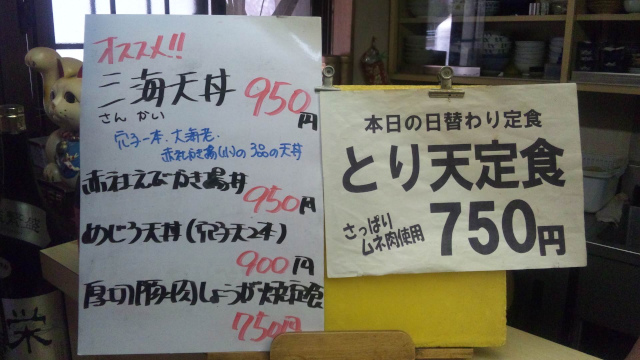 オススメ!!
三海天丼 950円
さん かい
穴子一本・大海老・
赤社えびかき揚(小)の3品の天丼
赤社えびかき揚丼
950円
めじろ天丼(穴子天2本)
900円
厚切豚肉しょうが焼定食
750円
本日の日替わり定食
とり天定食
さっぱり
ムネ肉使用 750円
栄